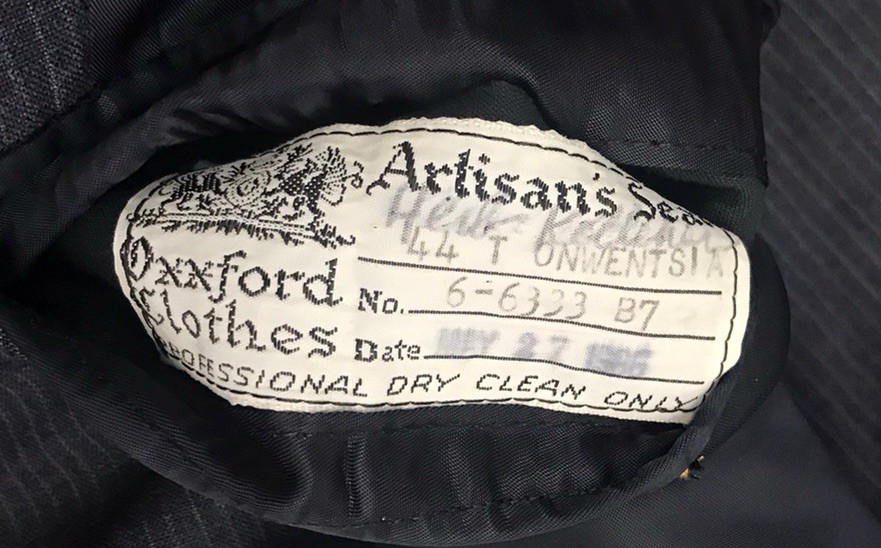 Artisan's Seal
44 T ONWENTSIA
Oxxford
Clothes
No. 6-6333 B7
Date MAY 27 1986
PROFESSIONAL DRY CLEAN ONLY